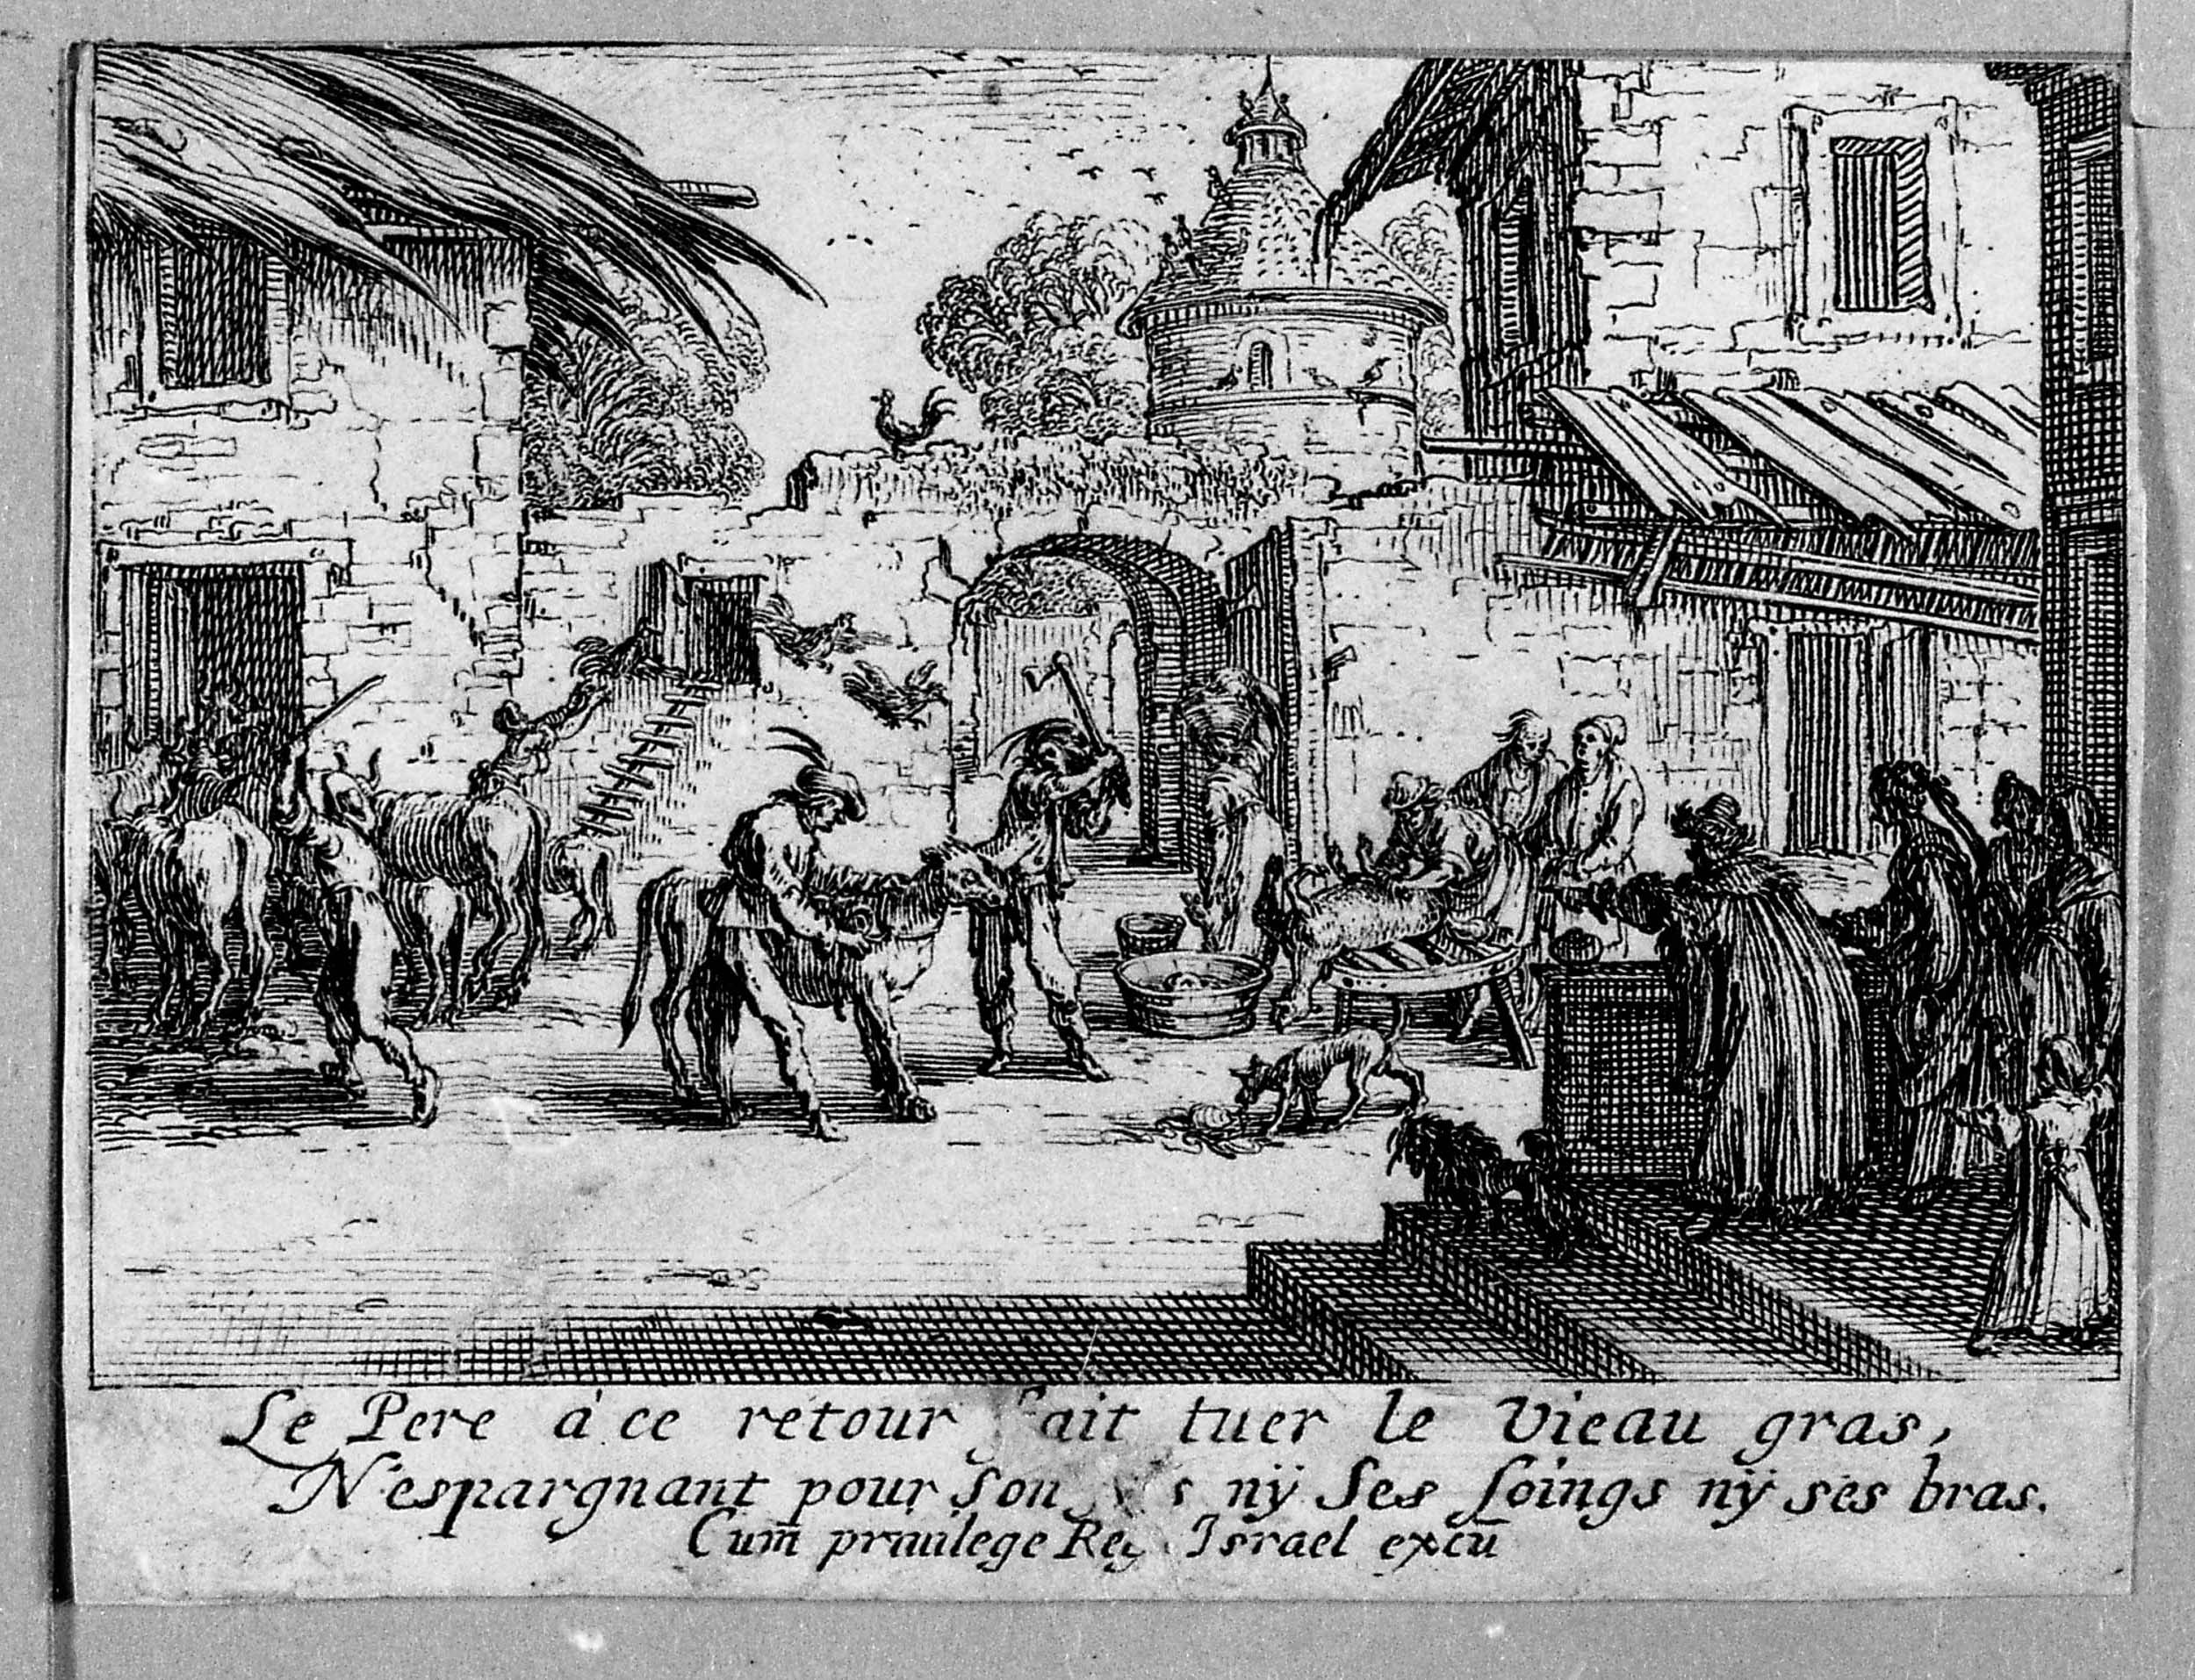 Le Pere à ce retour fait tuer le Vieau gras,
N'espargnant pour son nÿ ses soings nÿ ses bras.
Cum priuilege Reg Israel excū